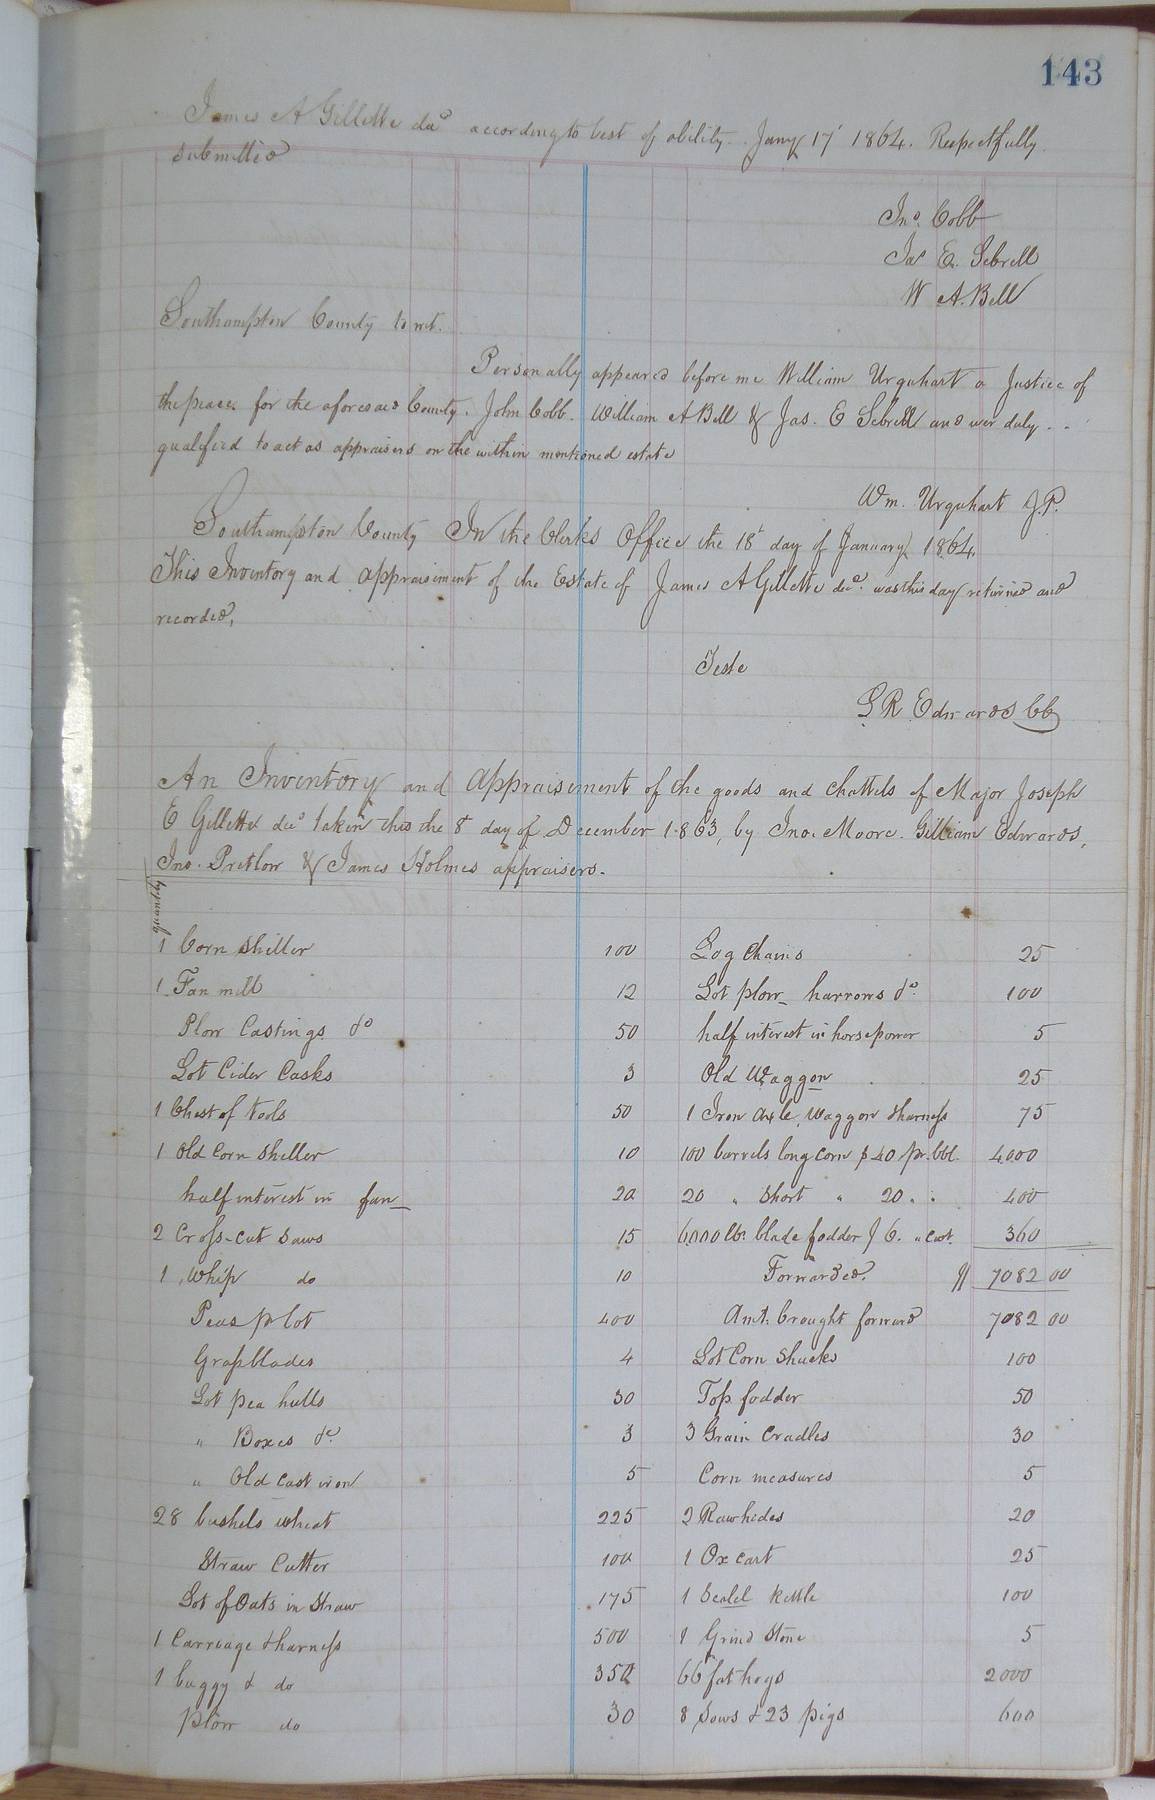 143
James A Gillette decd according to best of ability. Jany 17' 1864. Respectfully
submitted
Jno. Cobb
Jas E. Sebrell
W A. Bell
Southampton County to wit.
Personally appeared before me William Urquhart a Justice of
the peace for the aforesaid County. John Cobb. William A Bell & Jas. E Sebrell and wer duly
qualified to act as appraisers on the within mentioned estate
Wm. Urquhart J.P.
Southampton County In the Clerks Office the 18t day of January 1864
This Inventory and appraisement of the Estate of James A Gillette decd. was this day returned and
recorded,
Teste
L R Edwards CC
An Inventory and appraisement of the goods and chattels of Major Joseph
E Gillette decd taken this the 8t day of December 1863, by Jno. Moore. Gilliam Edwards,
Jno. Pretlow & James Holmes appraisers.
quantity
1 Corn Sheller 100
1 Fan mill 12
Plow Castings &c 50
Lot Cider Casks 3
1 Chest of tools 50
1 Old Corn Sheller 10
half interest in fan 20
2 Cross-cut Saws 15
1 Whip do 10
Peas pr lot 400
Grassblades 4
Lot pea hulls 30
" Boxes &c. 3
" Old cast iron 5
28 bushels wheat 225
Straw Cutter 100
Lot of Oats in Straw 175
1 Carriage & harness 500
1 buggy & do 350
Plow do 30
Log Chains 25
Lot plow harrows &c. 100
half interest in horsepower 5
Old Waggon 25
1 Iron axle Waggon & harness 75
100 barrels long corn $40 pr. bbl. 4000
20 " Short " 20 " " 400
6000 lbs blade fodder $6. " cwt. 360
Forwarded. $ 7082 00
Amt. brought forward 7082 00
Lot Corn Shucks 100
Top fodder 50
3 Grain Cradles 30
Corn measures 5
2 Rawhides 20
1 Ox cart 25
1 kettle 100
1 Grind Stone 5
66 fat hogs 2000
8 Sows & 23 pigs 600